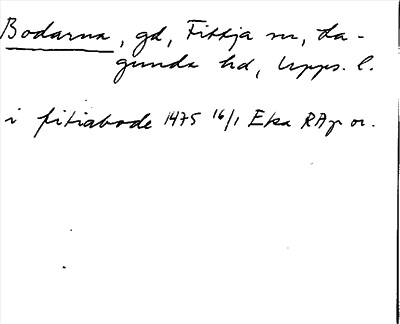 Bodarna, gd, Fittja sn, La-
gunda hd, Upps. l.
i fitiabode 1475 16/1 Eka RAp or.